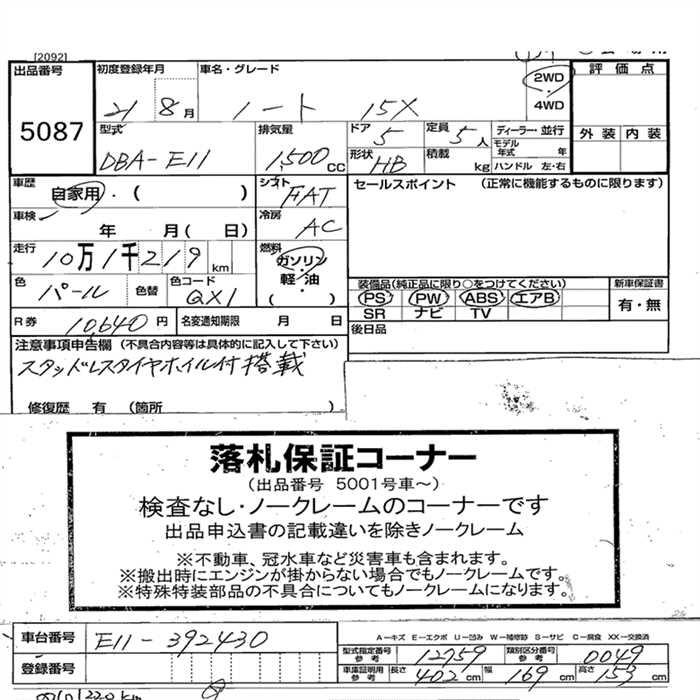 [2092]
出品番号 初度登録年月 車名・グレード 2WD 評価点
5087 21 8月 ノート 15X 4WD 外装 内装
型式 排気量 ドア 定員 ディーラー・並行
DBA-E11 1,500CC 5 5人 モデル年式 年
形状 HB 積載 kg ハンドル 左・右
車歴 自家用・( ) シフト FAT セールスポイント (正常に機能するものに限ります)
車検 年 月( 日) 冷房 AC
走行 10万1千219km 燃料 ガソリン・軽油・( )
色 パール 色替 色コード QX1 装備品(純正品に限り○をつけてください) 新車保証書
PS PW ABS エアB 有・無
SR ナビ TV
R券 10,640円 名変通知期限 月 日 後日品
注意事項申告欄 (不具合内容等は具体的に記入して下さい)
スタッドレスタイヤホイル付搭載
修復歴 有 (箇所
落札保証コーナー
(出品番号 5001号車~)
検査なし・ノークレームのコーナーです
出品申込書の記載違いを除きノークレーム
※不動車、冠水車など災害車も含まれます。
※搬出時にエンジンが掛からない場合でもノークレームです。
※特殊特装部品の不具合についてもノークレームになります。
車台番号 E11-392430
A-キズ E-エクボ U-凹み W-補修跡 S-サビ C-腐食 XX-交換済
登録番号
型式指定番号 参考 12759 類別区分番号 参考 0049
車庫証明用 参考 長さ 402cm 幅 169cm 高さ 153cm